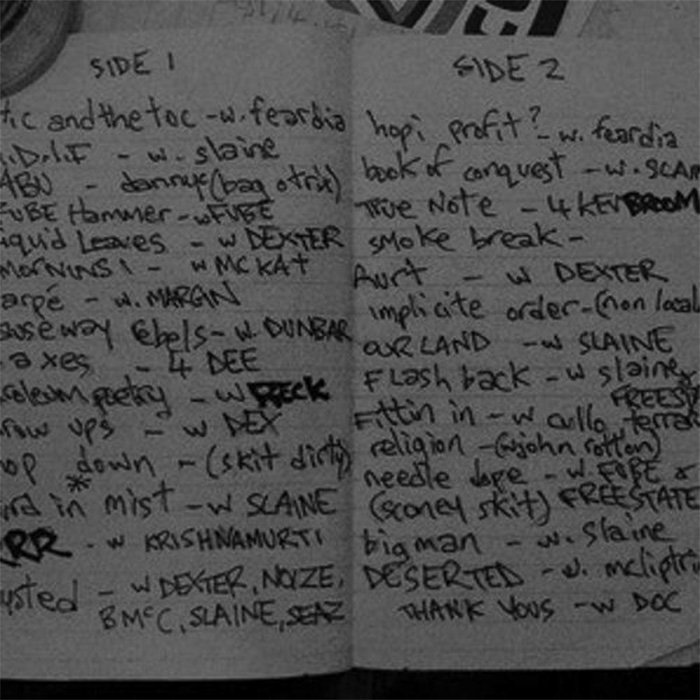 SIDE 1
tic and the toc - w. feardia
.D.I.F - w. slaine
ABU - dannyc (bag o trix)
FUBE Hammer - w FUBE
iquid Leaves - w DEXTER
MORNINS 1 - w MC KAT
arpé - w. MARGIN
auseway Rebels - w. DUNBAR
axes - 4 DEE
roleum poetry - w RECK
row ups - w DEX
op down - (skit dirty)
ird in mist - w SLAINE
RR - w KRISHNAMURTI
usted - w DEXTER, NOIZE,
B McC, SLAINE, SEAZ
SIDE 2
hopi profit? - w. feardia
book of conquest - w. SCAM
True Note - 4 KEV BROOM
smoke break -
Aurt - w DEXTER
implicite order - (non local
OUR LAND - w SLAINE
Flash back - w slaine
FREEST
Fittin in - w cullo, terra
religion - (w john rotton)
needle dope - w. FUBE &
(sconey skit) FREESTATE
big man - w. slaine
DESERTED - w. mcliptri
THANK YOUS - w DOC